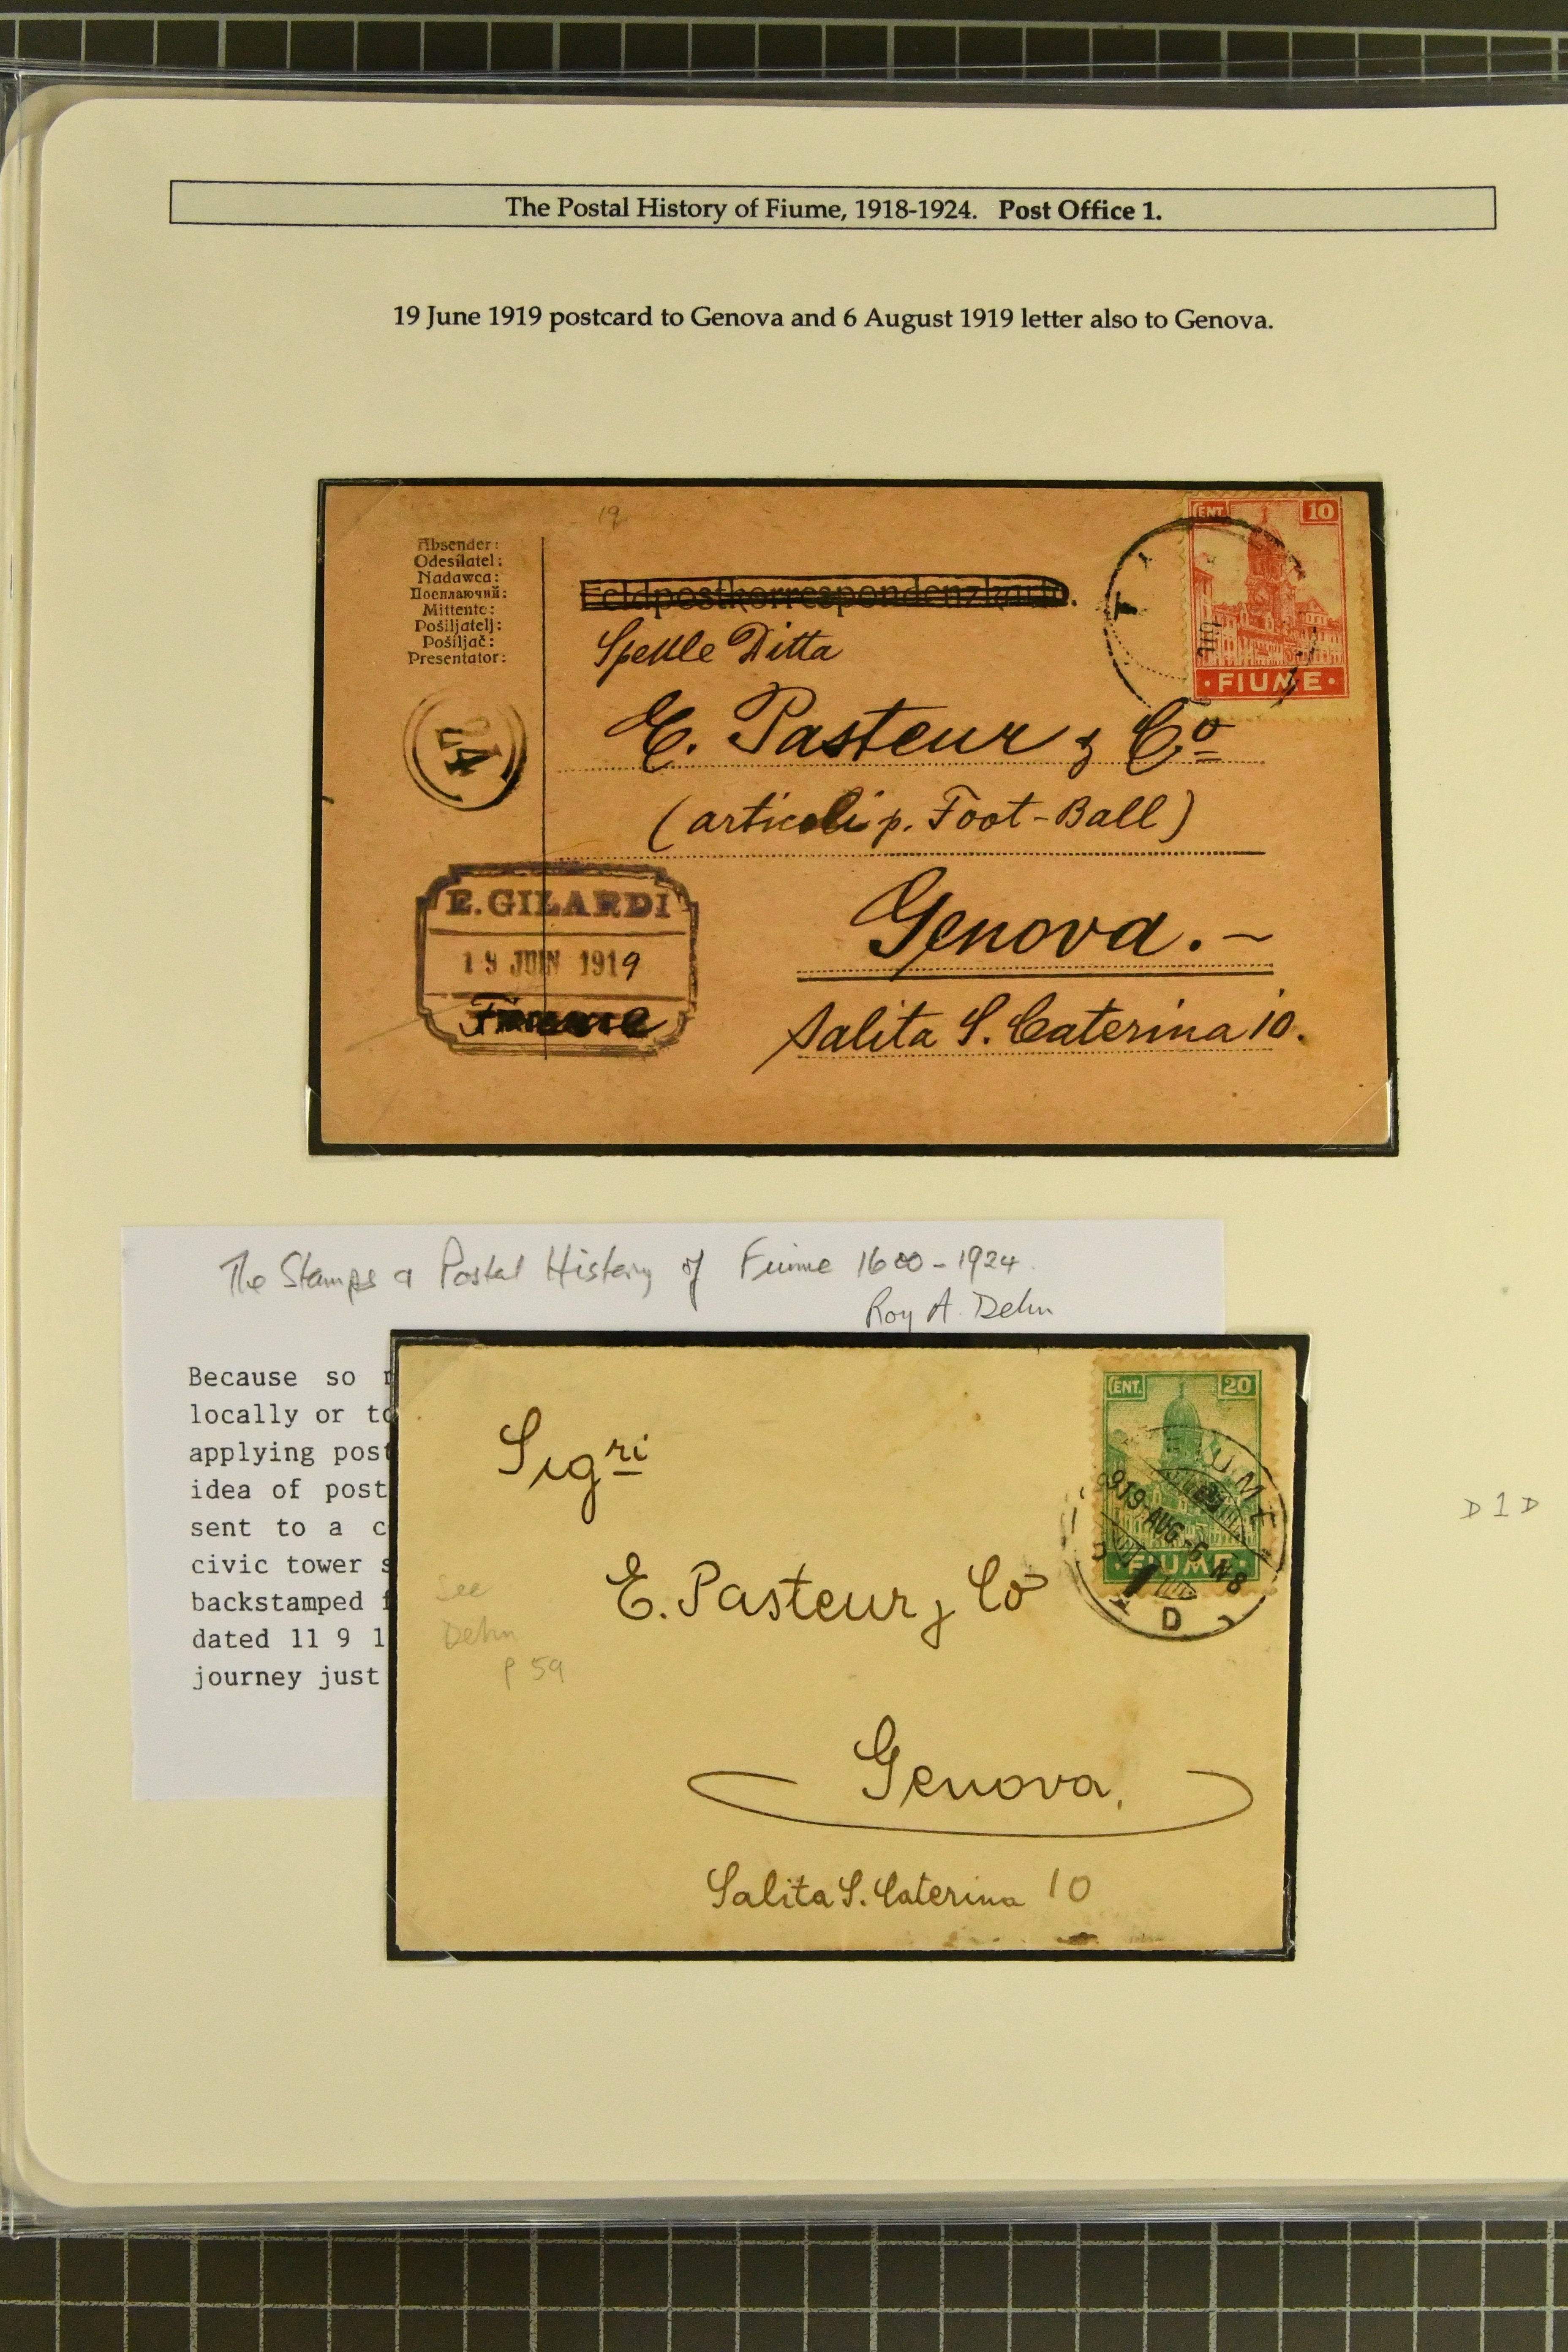 The Postal History of Fiume, 1918-1924. Post Office 1.
19 June 1919 postcard to Genova and 6 August 1919 letter also to Genova.
19
Absender:
Odesílatel:
Nadawca:
Посилаючий:
Mittente:
Pošiljatelj:
Pošiljač:
Presentator:
Feldpostkorrespondenzkarte.
CENT. 10
FIUME
Ditta
E. Pasteur & Co
(articoli p. Foot-Ball)
Genova.-
Salita S. Caterina 10.
E. GILARDI
19 JUIN 1919
Fiume
The Stamps & Postal History of Fiume 1600-1924
Roy A. Dehn
Because so
locally or to
applying post
idea of post
sent to a c
civic tower s
backstamped f
dated 11 9 1
journey just
See
Dehn
P 59
CENT. 20
FIUME
FIUME
919-AUG.-6 N8
D
Sigri
E. Pasteur & Co
Genova.
Salita S. Caterina 10
D 1 D